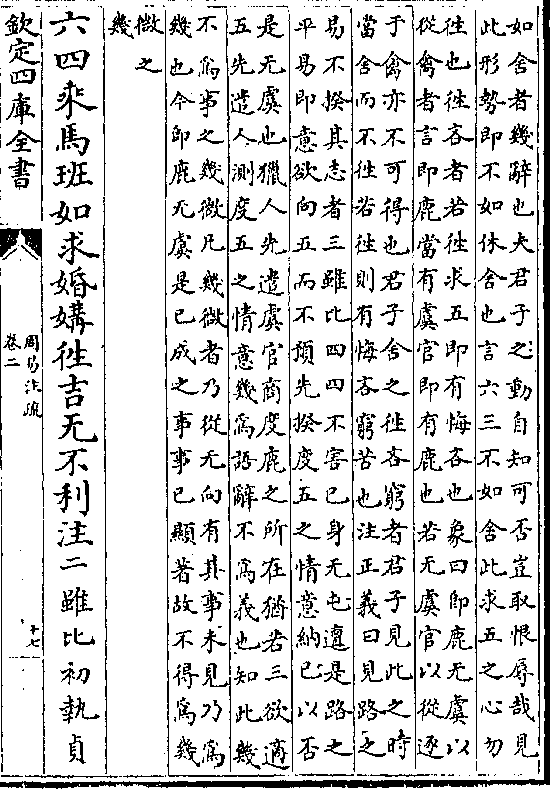 如舍者幾辭也夫君子之動自知可否豈取恨辱哉見
此形勢即不如休舍也言六三不如舍此求五之心勿
徃也徃吝者若徃求五即有悔吝也象曰即鹿无虞以
從禽者言即鹿當有虞官即有鹿也若无虞官以從逐
于禽亦不可得也君子舍之徃吝窮者君子見此之時
當舍而不徃若徃則有悔吝窮苦也注正義曰見路之
易不揆其志者三雖比四四不害已身无屯邅是路之
平易即意欲向五而不預先揆度五之情意納已以否
是无虞也獵人先遣虞官商度鹿之所在猶若三欲適
五先遣人測度五之情意幾爲語辭不爲義也知此幾
不爲事之幾微凡幾微者乃從无向有其事未見乃爲
幾也今即鹿无虞是已成之事事已顯著故不得爲幾
微之
幾
六四乘馬班如求婚媾徃吉无不利注二雖比初執貞
欽定四庫全書
周易注疏
卷二
十七